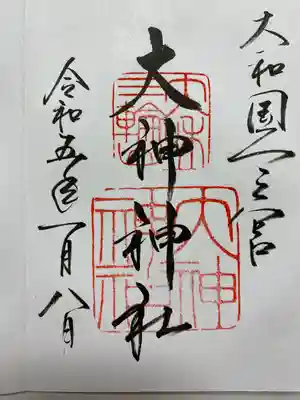 大和国一之宮
大神神社
令和五年一月八日
三輪
大神
神社